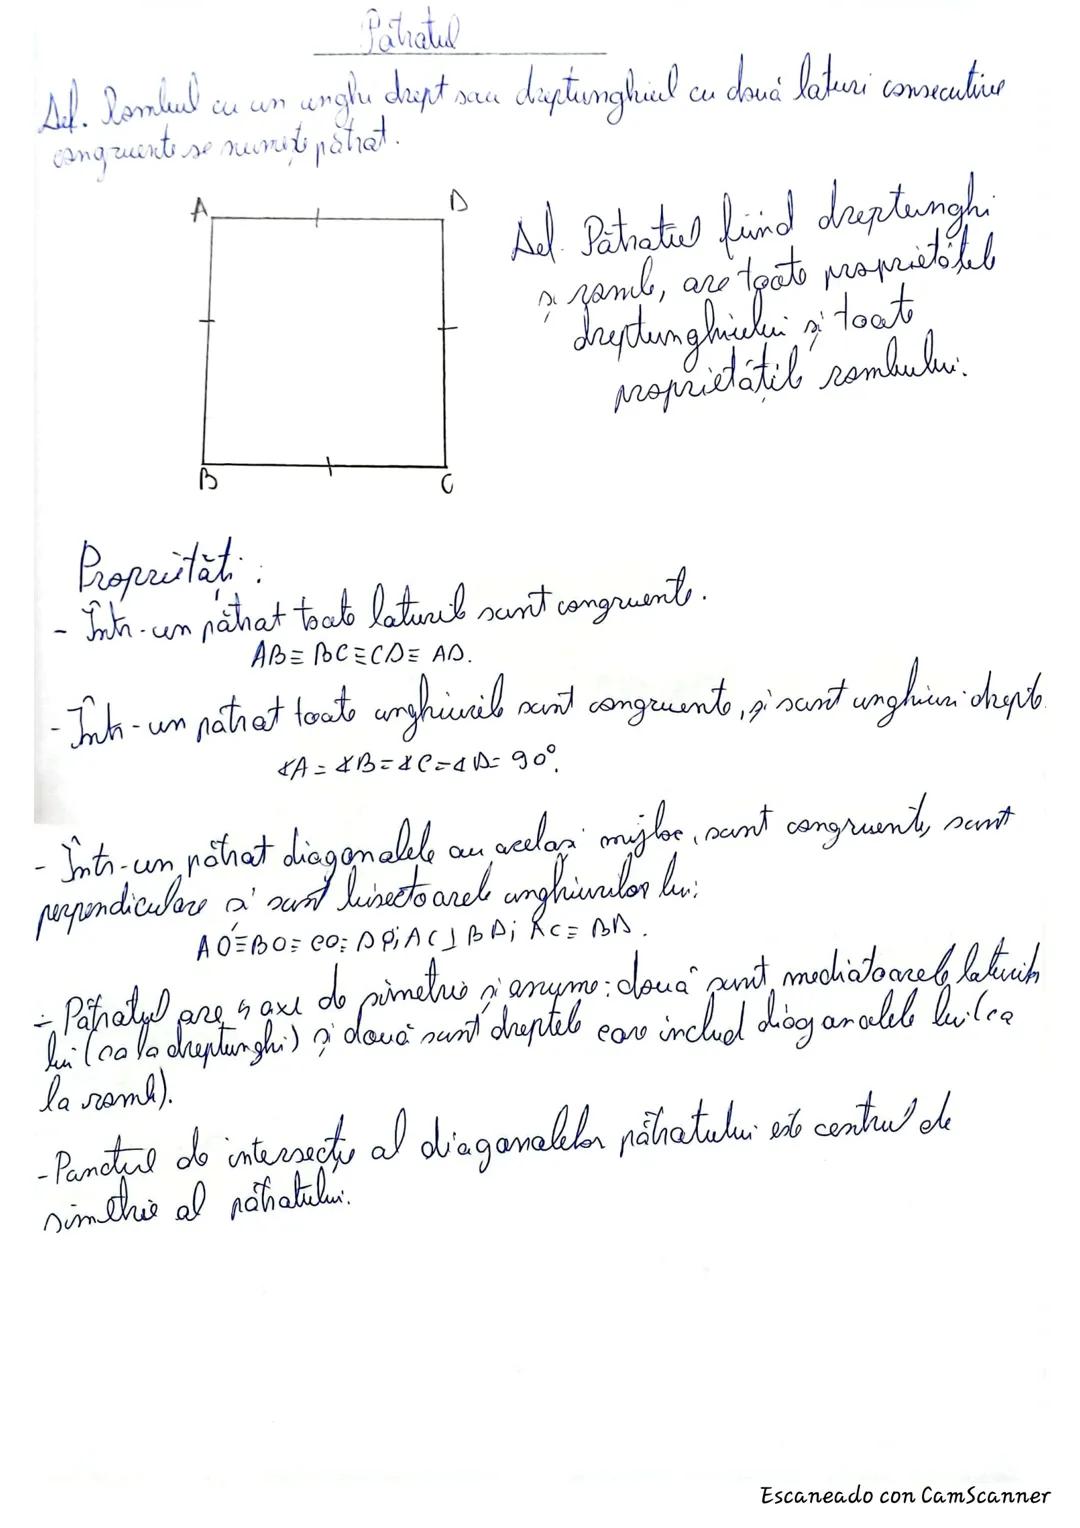 Pătratul
Def. Rombul cu un unghi drept sau dreptunghiul cu două laturi consecutive
congruente se numește pătrat.
A D
Def. Pătratul fiind dreptunghi
și romb, are toate proprietățile
dreptunghiului și toate
proprietățile rombului.
B C
Proprietăți:
- Într-un pătrat toate laturile sunt congruente.
AB≡BC≡CD≡AD.
- Într-un pătrat toate unghiurile sunt congruente, și sunt unghiuri drepte.
∢A=∢B=∢C=∢D=90°.
- Într-un pătrat diagonalele au același mijloc, sunt congruente, sunt
perpendiculare și sunt bisectoarele unghiurilor lui:
AO≡BO≡CO≡DO; AC⊥BD; AC≡BD.
- Pătratul are 4 axe de simetrie și anume: două sunt mediatoarele laturilor
lui (ca la dreptunghi) și două sunt dreptele care includ diagonalele lui (ca
la romb).
- Punctul de intersecție al diagonalelor pătratului este centrul de
simetrie al pătratului.
Escaneado con CamScanner